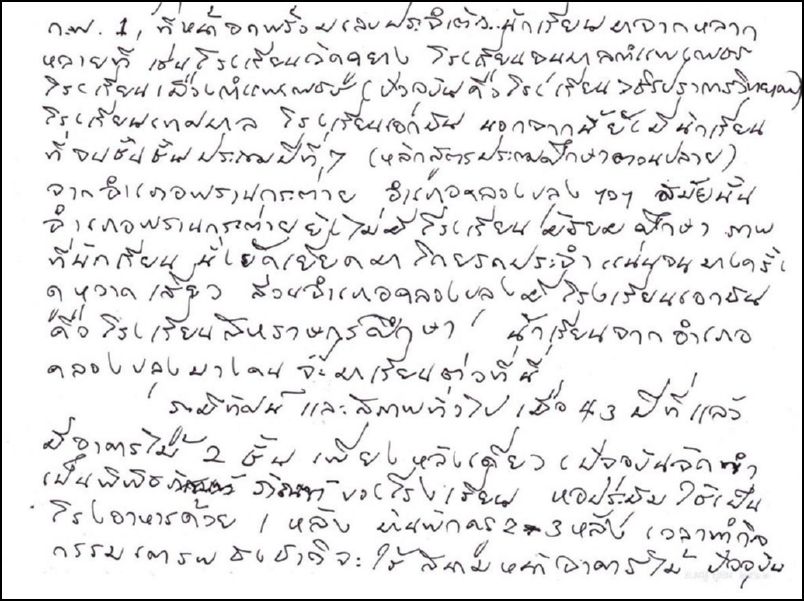 ก.พ. 1, ที่หน้าอกพร้อมเลขประจำตัว นักเรียนมาจากหลาก
หลายที่ เช่นโรงเรียนวัดคูยาง โรงเรียนอนุบาลกำแพงเพชร
โรงเรียนเมืองกำแพงเพชร (ปัจจุบันคือโรงเรียนวชิรปราการวิทยาคม)
โรงเรียนเทศบาล โรงเรียนเอกชน นอกจากนี้ยังมีนักเรียน
ที่จบชั้นประถมปีที่ 7 (หลักสูตรประถมศึกษาตอนปลาย)
จากอำเภอพรานกระต่าย อำเภอคลองขลุง ฯลฯ สมัยนั้น
อำเภอพรานกระต่ายยังไม่มีโรงเรียนมัธยมศึกษา ภาพ
ที่นักเรียน นั่งยัดเยียดมาโดยรถประจำ แน่นจนบางครั้ง
ดูหวาดเสียว ส่วนอำเภอคลองขลุงมีโรงเรียนเอกชน
คือโรงเรียนสิหราษฎร์ศึกษา นักเรียนจากอำเภอ
คลองขลุงบางคน จึงมาเรียนต่อที่นี่
ภูมิทัศน์ และสภาพทั่วไป เมื่อ 43 ปีที่แล้ว
มีอาคารไม้ 2 ชั้น เพียงหลังเดียว (ปัจจุบันจัดทำ
เป็นพิพิธภัณฑ์ของโรงเรียน หอประชุม ใช้เป็น
โรงอาหารด้วย 1 หลัง บ้านพักครู 2-3 หลัง เวลาทำกิจ
กรรมเคารพธงชาติจะใช้สนามหน้าอาคารไม้ ปัจจุบัน